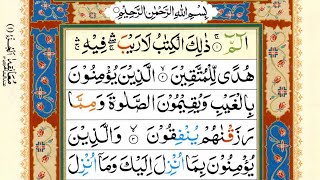 بِسْمِ اللهِ الرَّحْمٰنِ الرَّحِيْمِ
الٓمّٓ ۚ ١ ذٰلِكَ الْكِتٰبُ لَا رَيْبَ ۛ فِيْهِ ۛ
هُدًى لِّلْمُتَّقِيْنَ ۙ ٢ الَّذِيْنَ يُؤْمِنُوْنَ
بِالْغَيْبِ وَيُقِيْمُوْنَ الصَّلٰوةَ وَمِمَّا
رَزَقْنٰهُمْ يُنْفِقُوْنَ ۙ ٣ وَالَّذِيْنَ
يُؤْمِنُوْنَ بِمَاۤ اُنْزِلَ اِلَيْكَ وَمَاۤ اُنْزِلَ